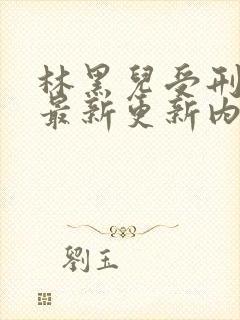 林黑兒受刑
最新更新內
劉玉